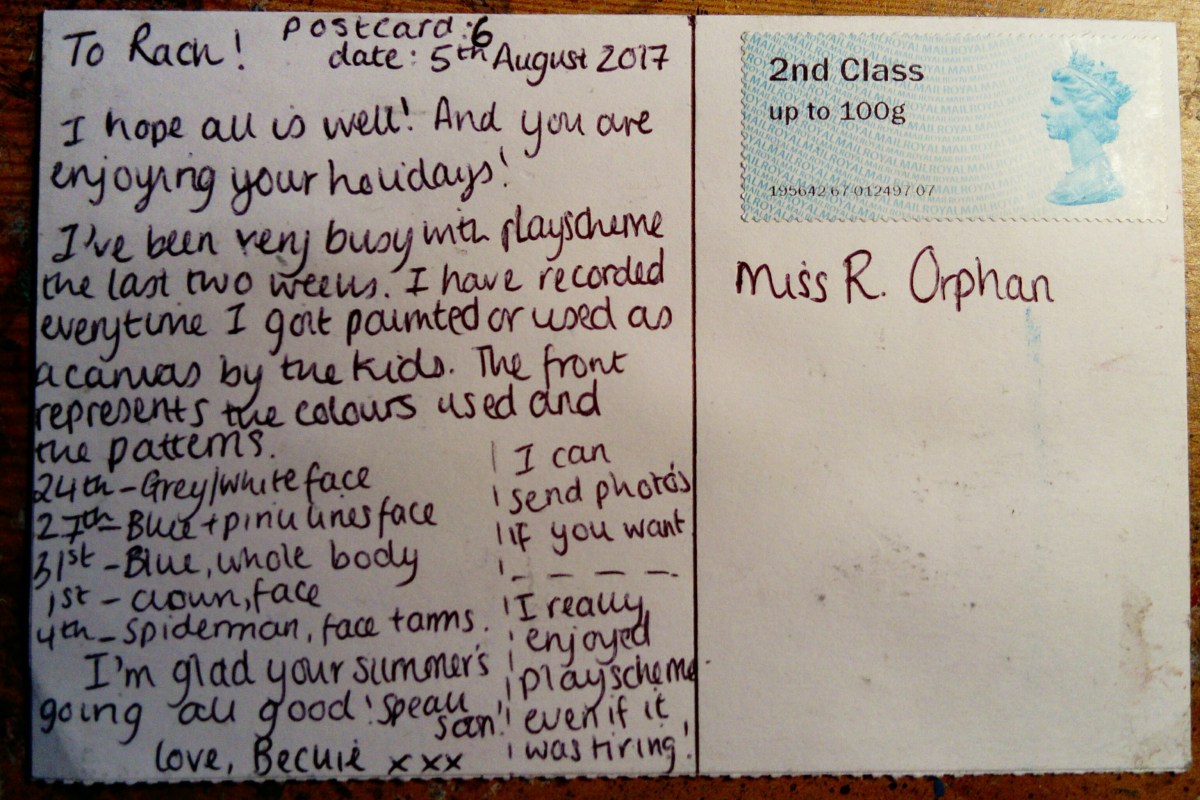 To Rach!
postcard: 6
date: 5th August 2017
I hope all is well! And you are
enjoying your holidays!
I've been very busy with playscheme
the last two weeks. I have recorded
everytime I got painted or used as
a canvas by the kids. The front
represents the colours used and
the patterns.
24th - Grey/white face
27th - Blue + pink lines face
31st - Blue, whole body
1st - clown, face
4th - spiderman, face + arms.
I'm glad your summer's
going all good! Speak
soon!
love, Beckie xxx
I can
send photos
if you want
I really
enjoyed
playscheme
even if it
was tiring!
2nd Class
up to 100g
195642 67 012497 07
Miss R. Orphan